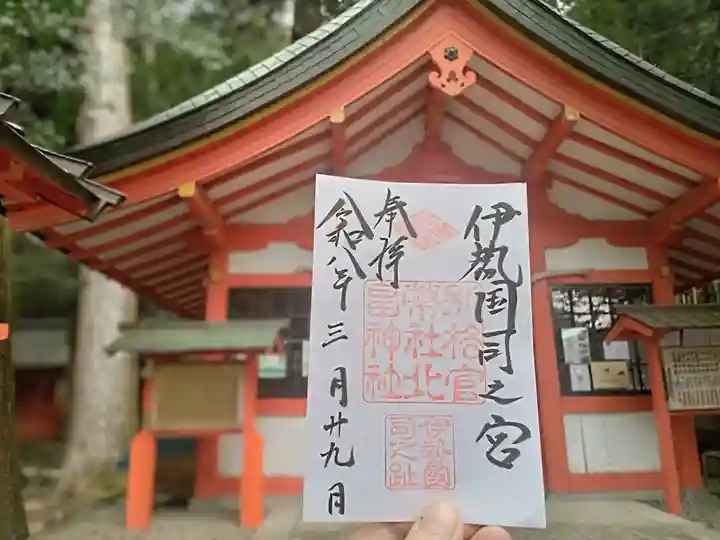 伊勢国司之宮
別格官
幣社北
畠神社
伊勢國
司之趾
奉拝
令和八年三月廿九日